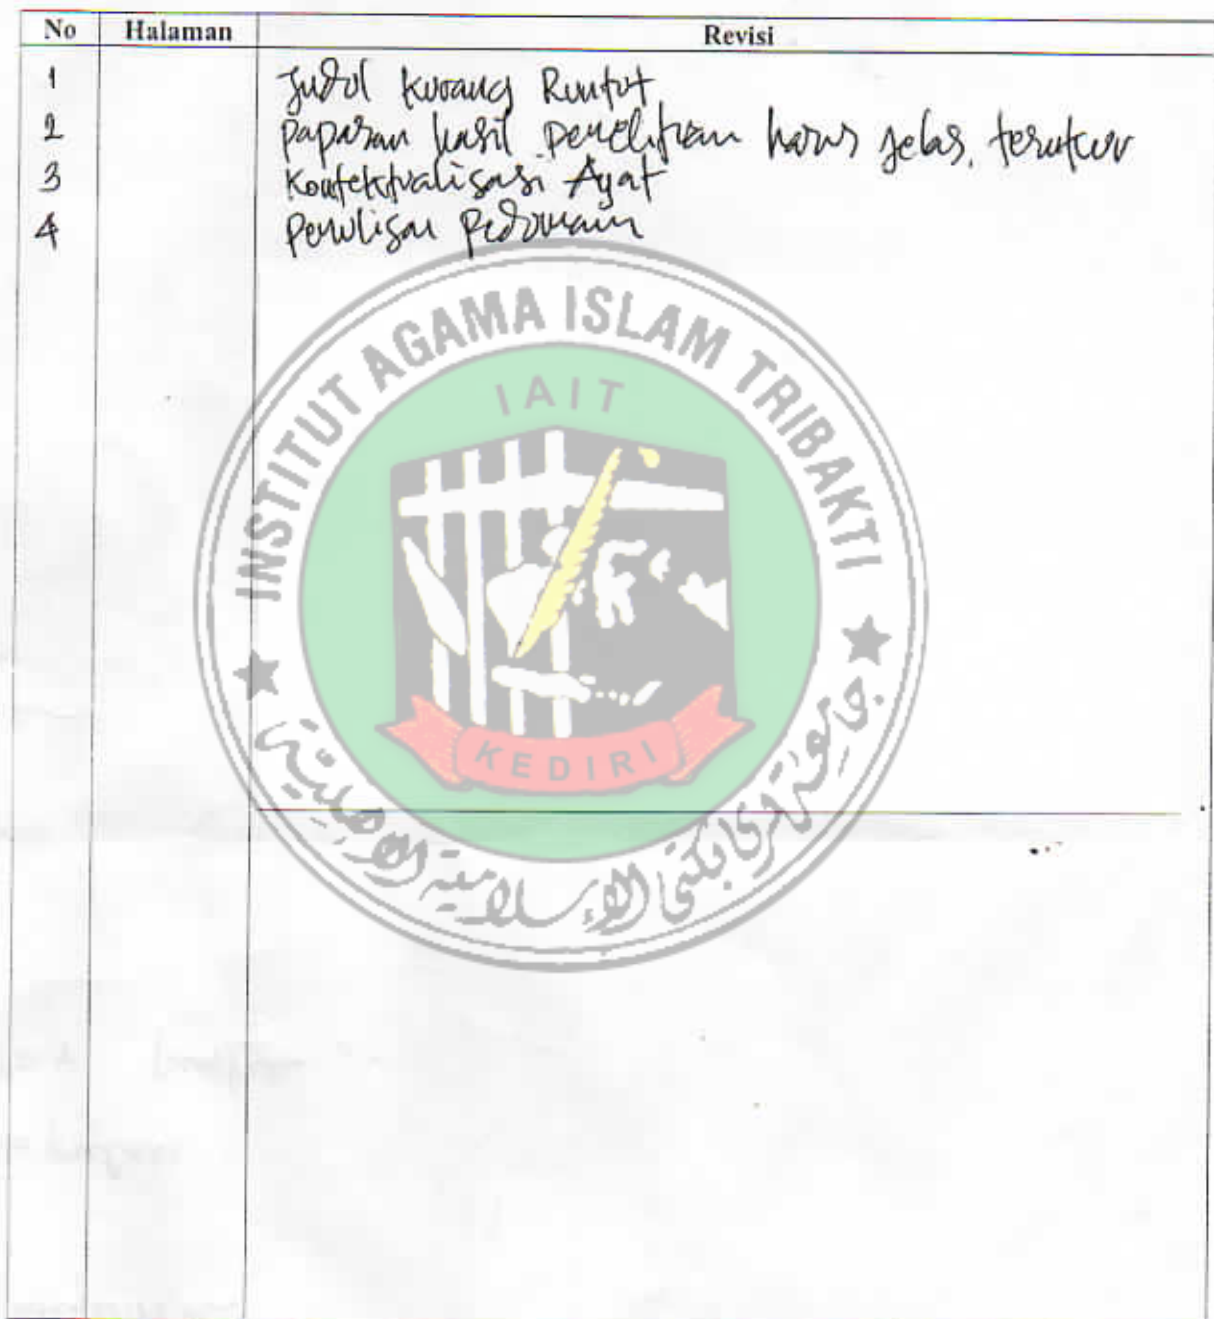 No Halaman Revisi
1 Judul kurang Runtut
2 paparan hasil penelitian harus jelas, terukur
3 Kontekstualisasi Ayat
4 Penulisan Pedoman
INSTITUT AGAMA ISLAM TRIBAKTI
IAIT
KEDIRI
جامعة تري بكتي الإسلامية الأهلية